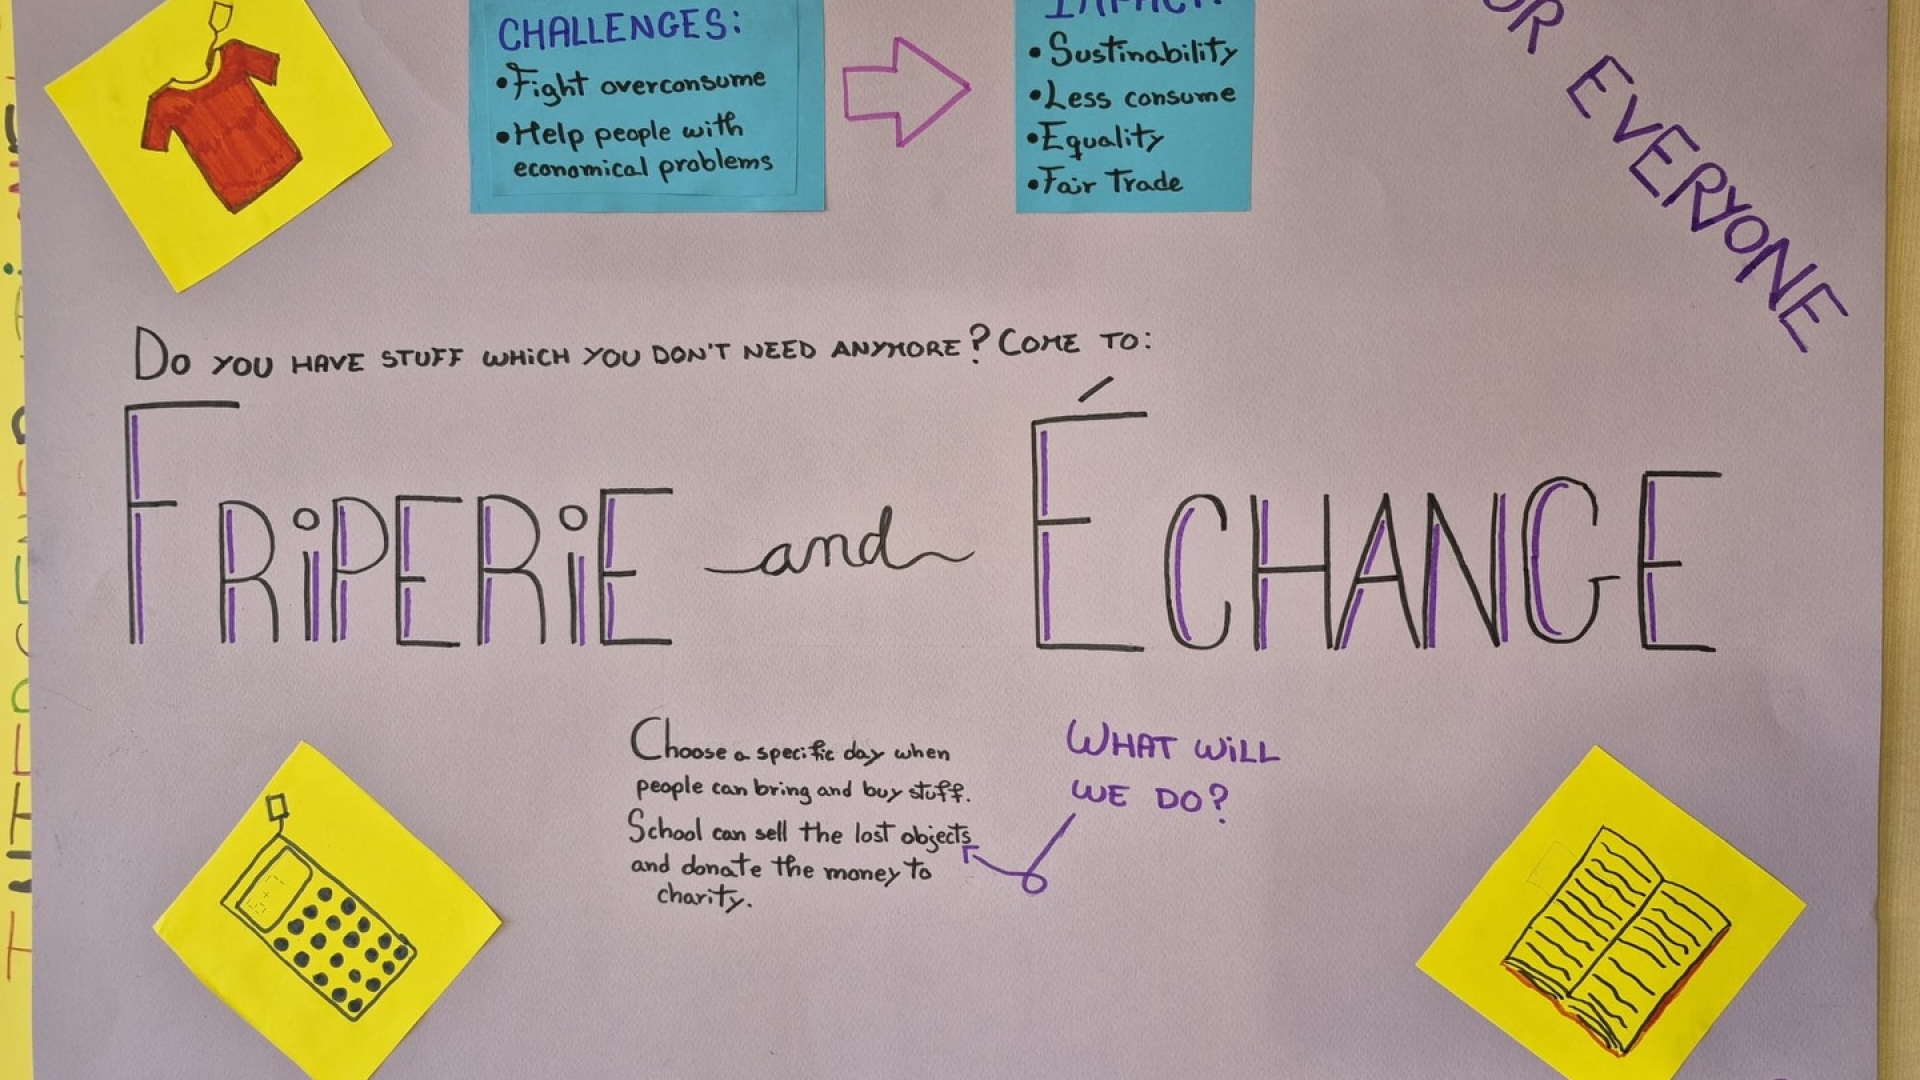 CHALLENGES:
•Fight overconsume
•Help people with
economical problems
IMPACT:
•Sustinability
•Less consume
•Equality
•Fair Trade
EVERYONE
DO YOU HAVE STUFF WHiCH YOU DON'T NEED ANYMORE? COME TO:
FRiPERiE and ÉCHANGE
Choose a specific day when
people can bring and buy stuff.
School can sell the lost objects
and donate the money to
charity.
WHAT WiLL
WE DO?